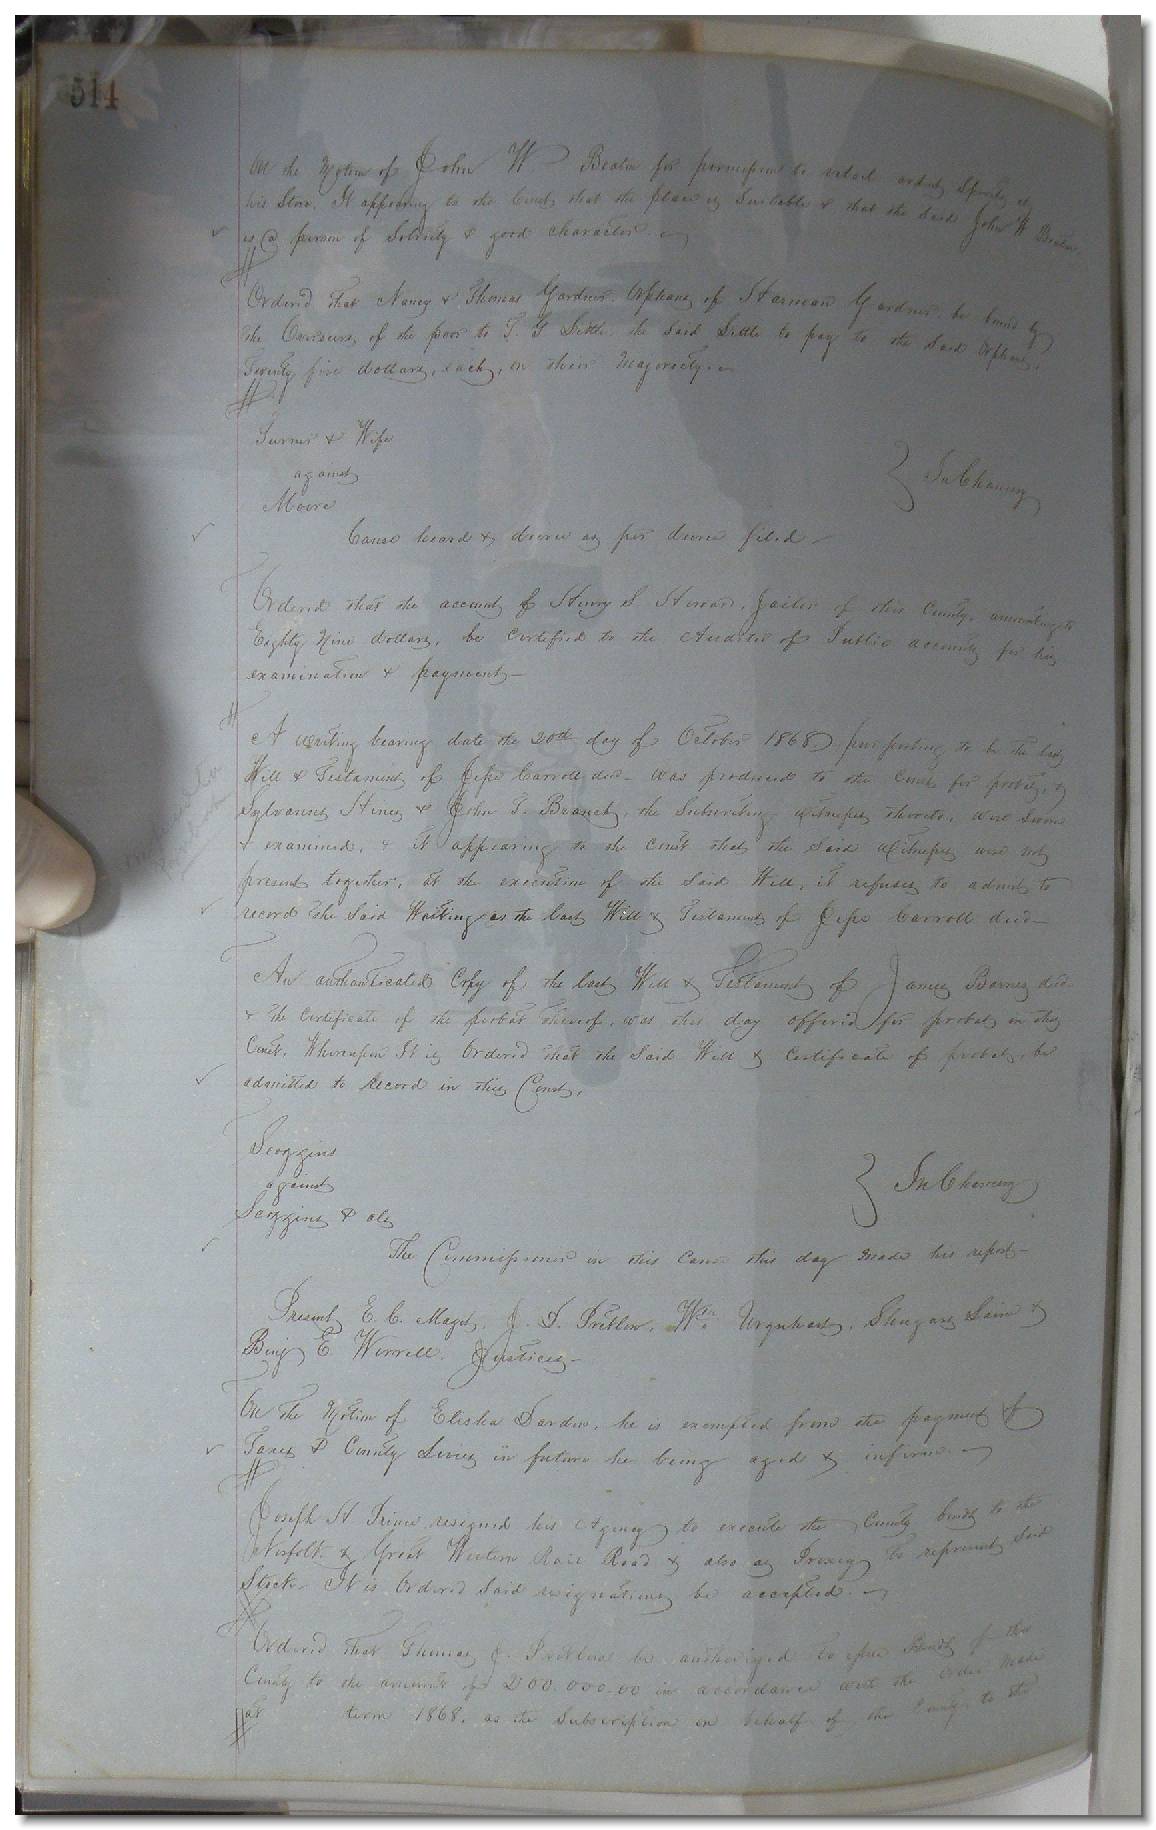 514
On the Motion of John W Beaton for permission to retail ardent Spirits at
his Store. It appearing to the Court that the place is Suitable & that the said John W Beaton
is a person of Sobriety & good character.
Ordered That Nancy & Thomas Gardner Orphans of Herman Gardner be bound by
the Overseers of the poor to T. G Little. the said Little to pay to the said Orphans,
Twenty five dollars, each, on their Majority.
Turner & Wife
against
Moore
In Chancery
Cause heard & decree as per decree filed
Ordered that the account of Henry S. Howard, Jailor of this County, amounting to
Eighty Nine dollars, be Certified to the Auditor of Public accounts for his
examination & payment
A writing bearing date the 20th day of October 1868 purporting to be the last
Will & Testament of Jesse Carroll decd was produced to the Court for probat, &
Sylvanus Hines & John T. Branch, the Subscribing witnesses thereto, were sworn
& examined, & it appearing to the court that the said witnesses were not
present together, at the execution of the said Will, it refuses to admit to
record the said Writing as the last Will & Testament of Jesse Carroll decd
An authenticated Copy of the last Will & Testament of James Barnes decd
& the Certificate of the probat thereof, was this day offered for probat in this
Court. Whereupon It is Ordered that the said Will & Certificate of probat, be
admitted to Record in this Court,
Scoggins
against
Scoggins & als
In Chancery
The Commissioner in this Cause this day made his report
Present, E. C. Maget, J. T. Pretlow, Wm Urquhart, Shugars Lain &
Benj E. Worrell. Justices
On the Motion of Elisha Darden, he is exempted from the payment of
Taxes & County Levies in future he being aged & infirm.
Joseph H Prince resigned his Agency to execute the County bonds to the
Norfolk & Great Western Rail Road & also as Proxey to represent said
Stock It is Ordered Said resignations be accepted.
Ordered that Thomas J. Pretlow be authorized to issue Bonds of this
County to the amount of 200.000.00 in accordance with the order made
at term 1868. as the Subscription on behalf of the County to the